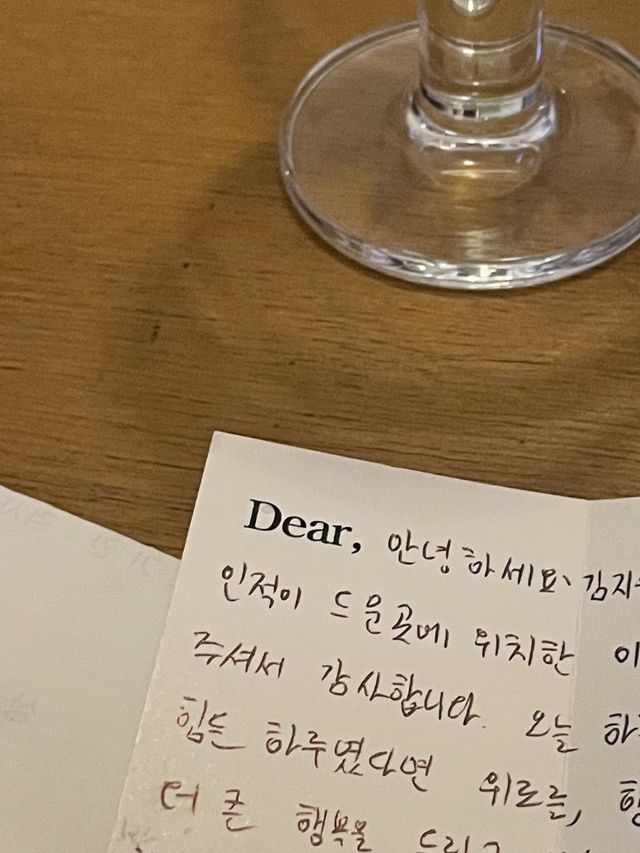 Dear, 안녕하세요, 김지
인적이 드문곳에 위치한 이
주셔서 감사합니다. 오늘 하
힘든 하루였다면 위로를,
더 큰 행복을 드리고